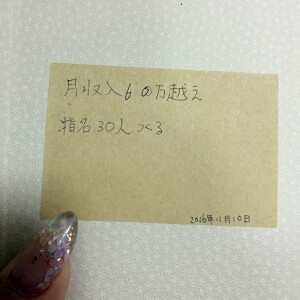 月収入60万越え
指名30人つくる
2016年11月10日